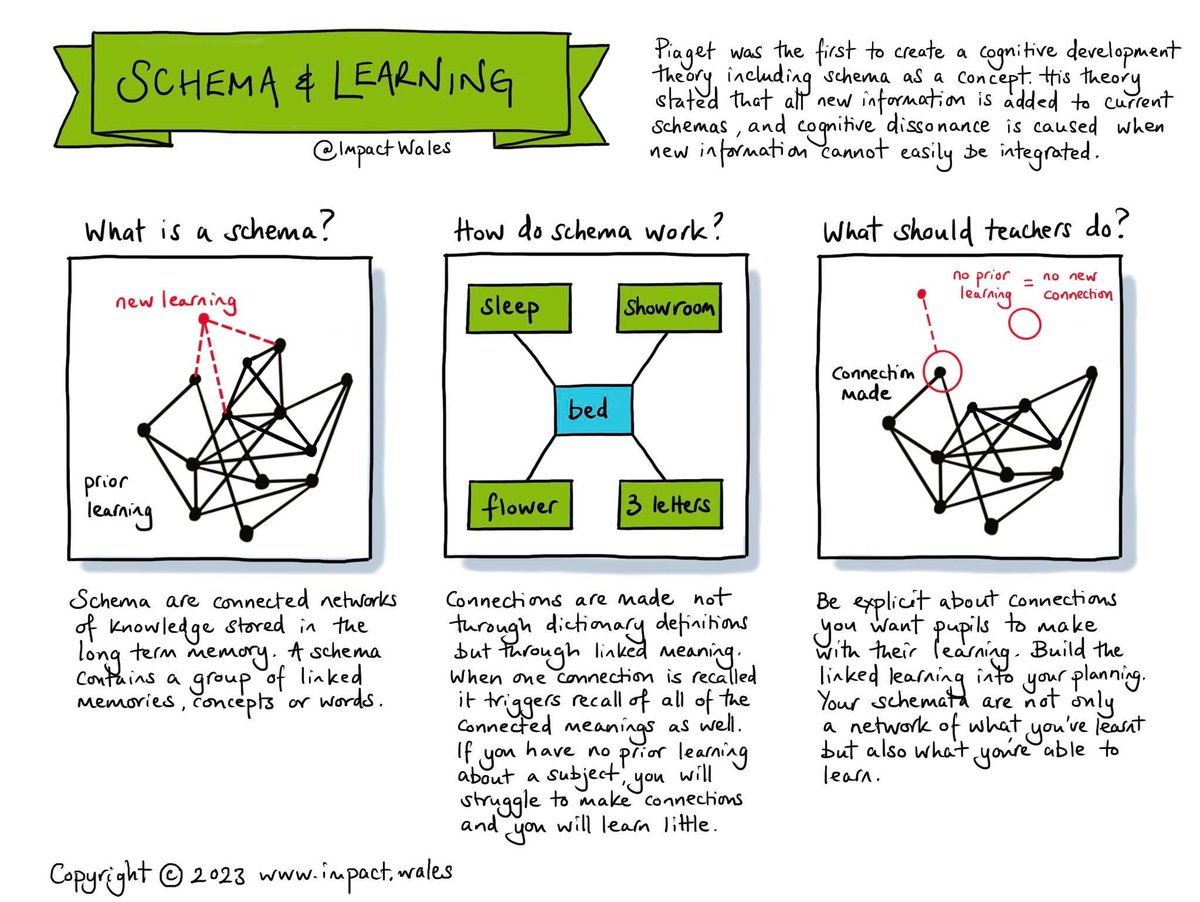 SCHEMA & LEARNING
@ImpactWales
Piaget was the first to create a cognitive development
theory including schema as a concept. His theory
stated that all new information is added to current
schemas, and cognitive dissonance is caused when
new information cannot easily be integrated.
What is a schema?
new learning
prior
learning
Schema are connected networks
of knowledge stored in the
long term memory. A schema
contains a group of linked
memories, concepts or words.
How do schema work?
sleep
showroom
bed
flower
3 letters
Connections are made not
through dictionary definitions
but through linked meaning.
When one connection is recalled
it triggers recall of all of the
connected meanings as well.
If you have no prior learning
about a subject, you will
struggle to make connections
and you will learn little.
What should teachers do?
no prior
learning
=
no new
connection
connection
made
Be explicit about connections
you want pupils to make
with their learning. Build the
linked learning into your planning.
Your schemata are not only
a network of what you've learnt
but also what you're able to
learn.
Copyright © 2023 www.impact.wales